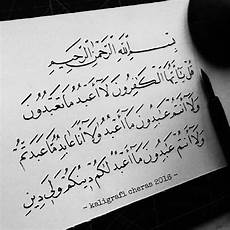 بِسْمِ اللَّهِ الرَّحْمَٰنِ الرَّحِيمِ
قُلْ يَا أَيُّهَا الْكَافِرُونَ لَا أَعْبُدُ مَا تَعْبُدُونَ
وَلَا أَنْتُمْ عَابِدُونَ مَا أَعْبُدُ وَلَا أَنَا عَابِدٌ مَا عَبَدْتُمْ
وَلَا أَنْتُمْ عَابِدُونَ مَا أَعْبُدُ لَكُمْ دِينُكُمْ وَلِيَ دِينِ
- kaligrafi cheras 2016 -